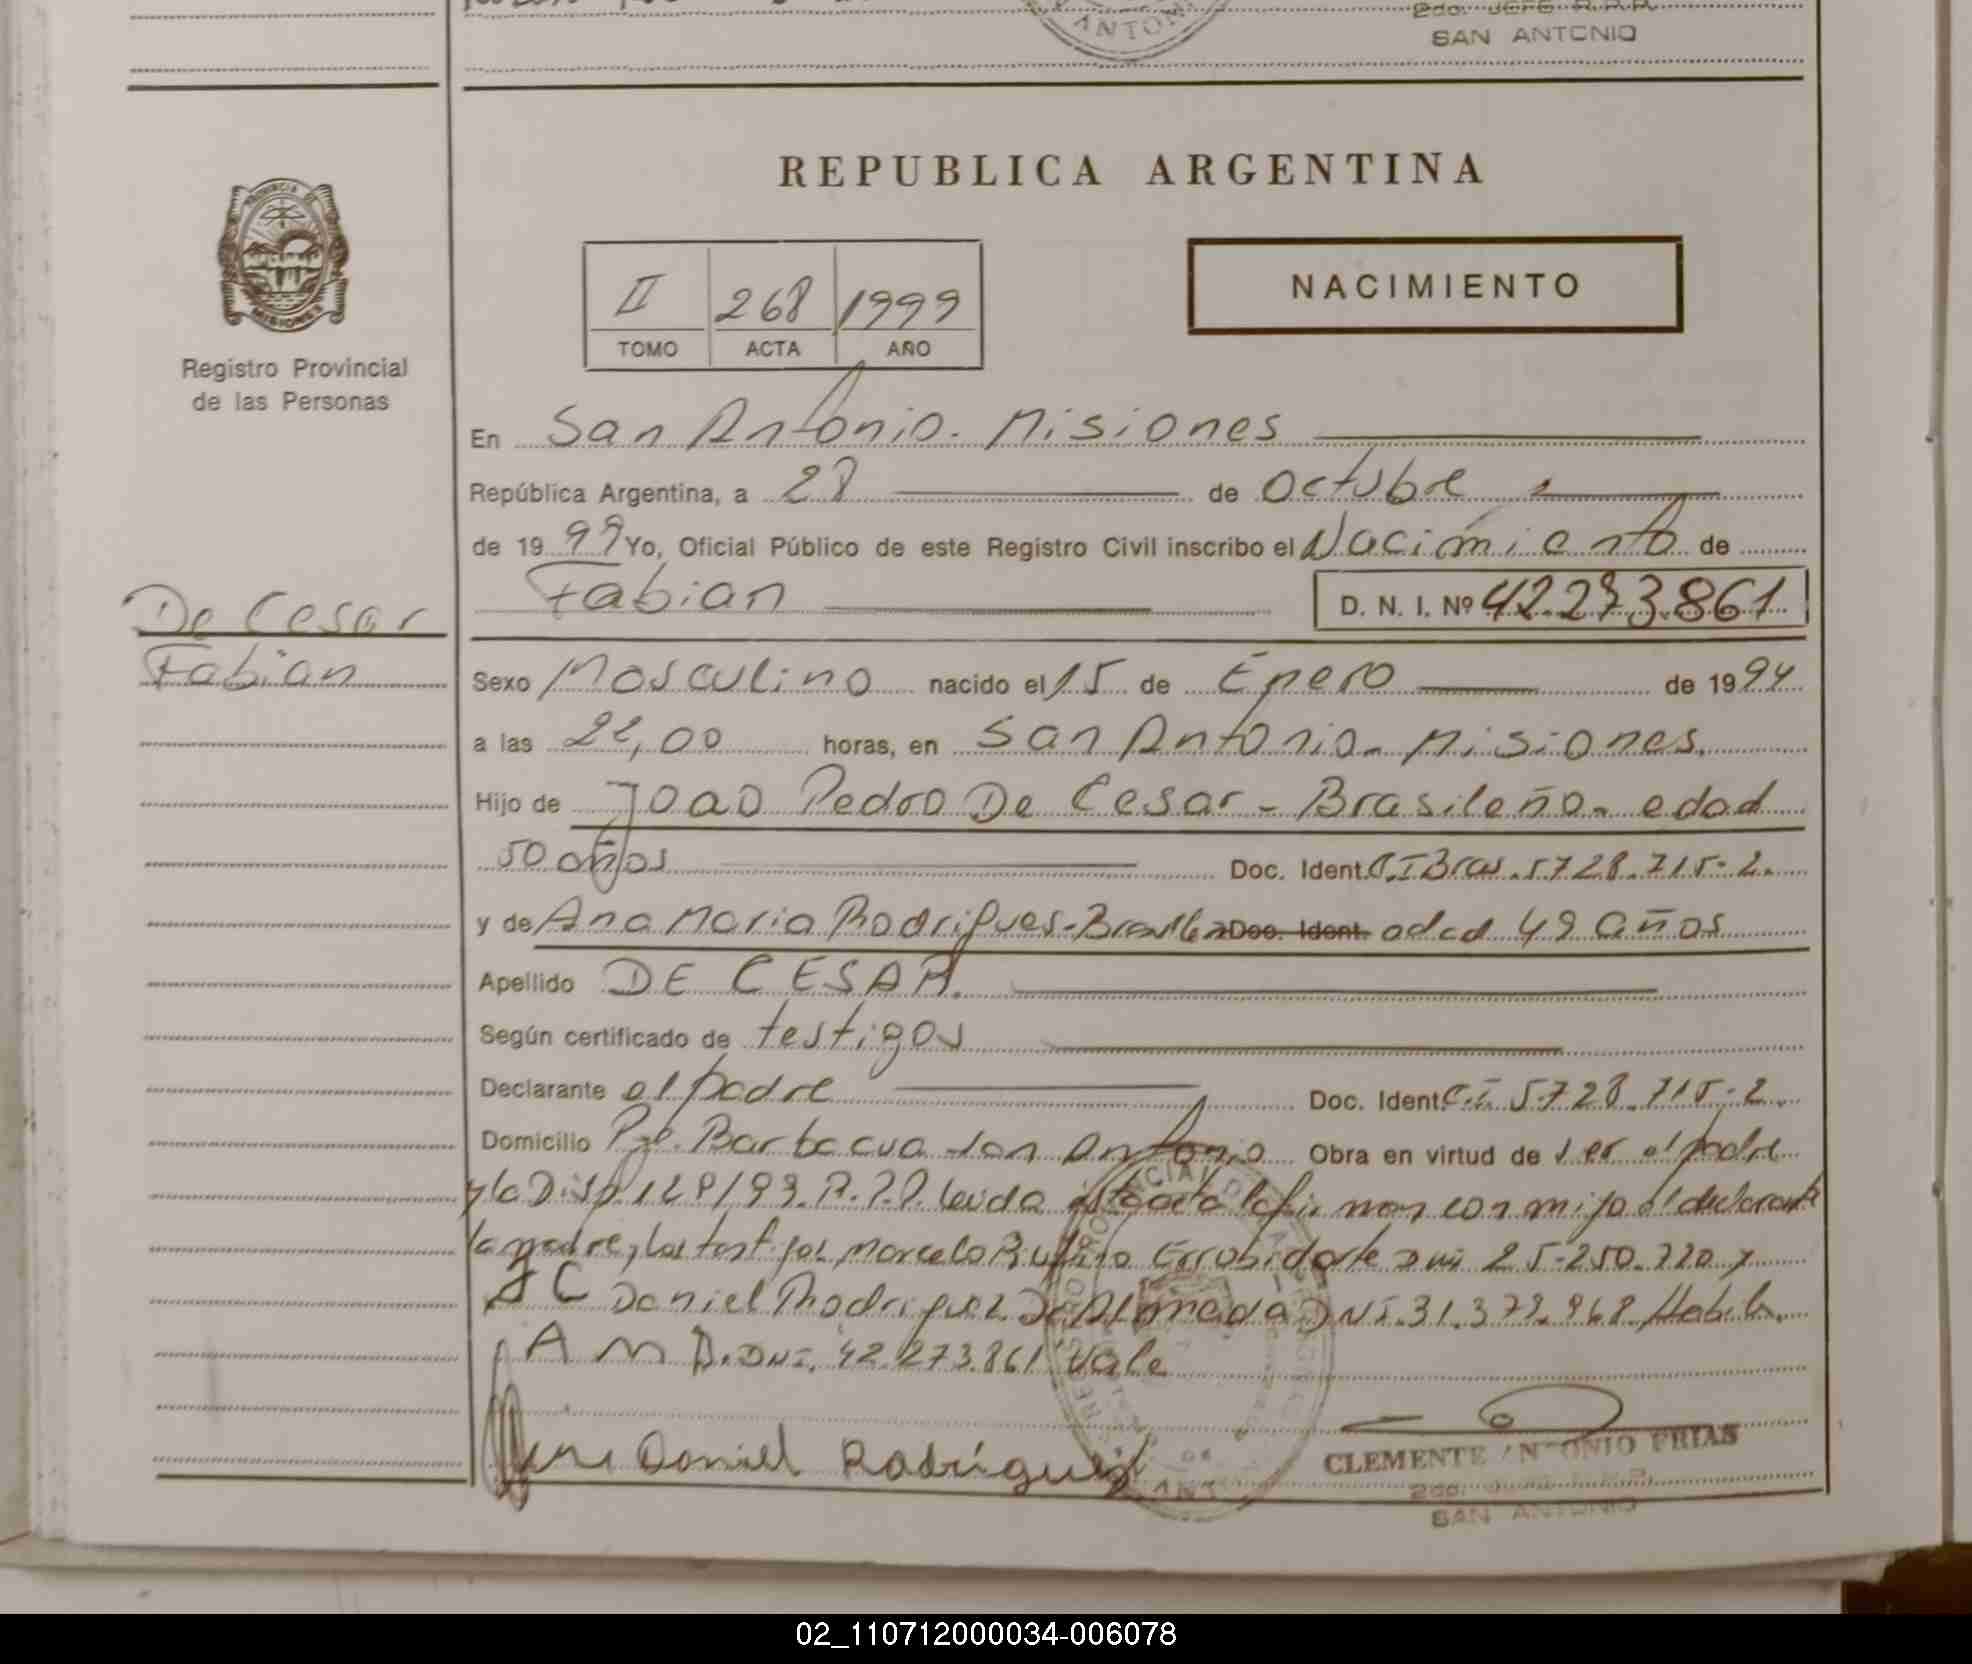 ANTONI
2do. JEFE R.P.P.
SAN ANTONIO
PROVINCIA DE
MISIONES
Registro Provincial
de las Personas
REPUBLICA ARGENTINA
II 268 1999
TOMO ACTA AÑO
NACIMIENTO
En San Antonio - Misiones
República Argentina, a 28 de Octubre
de 19 99 Yo, Oficial Público de este Registro Civil inscribo el Nacimiento de
Fabian D. N. I. Nº 42.273.861
De Cesar
Fabian
Sexo Masculino nacido el 15 de Enero de 19 94
a las 22,00 horas, en San Antonio - Misiones.
Hijo de Joao Pedro De Cesar - Brasileño - edad
50 años Doc. Ident. C.I Bras. 5728.715-2.
y de Ana Maria Rodrigues - Doc. Ident. edad 49 años
Apellido DE CESAR.
Según certificado de testigos
Declarante el padre Doc. Ident. C.I 5728.715-2.
Domicilio Pje. Barbacua San Antonio Obra en virtud de ser el padre
y la Disp. /99. R.P.P. Leida esta acta la firman conmigo el declarante
la madre, los testigos, Marcelo DNI 25.250.720 y
J C Daniel Rodriguez De Almada DNI. 31.379.968
A M R. DNI. 42.273.861 Vale
Daniel Rodríguez
CLEMENTE ANTONIO FRIAS
SAN ANTONIO
02_110712000034-006078